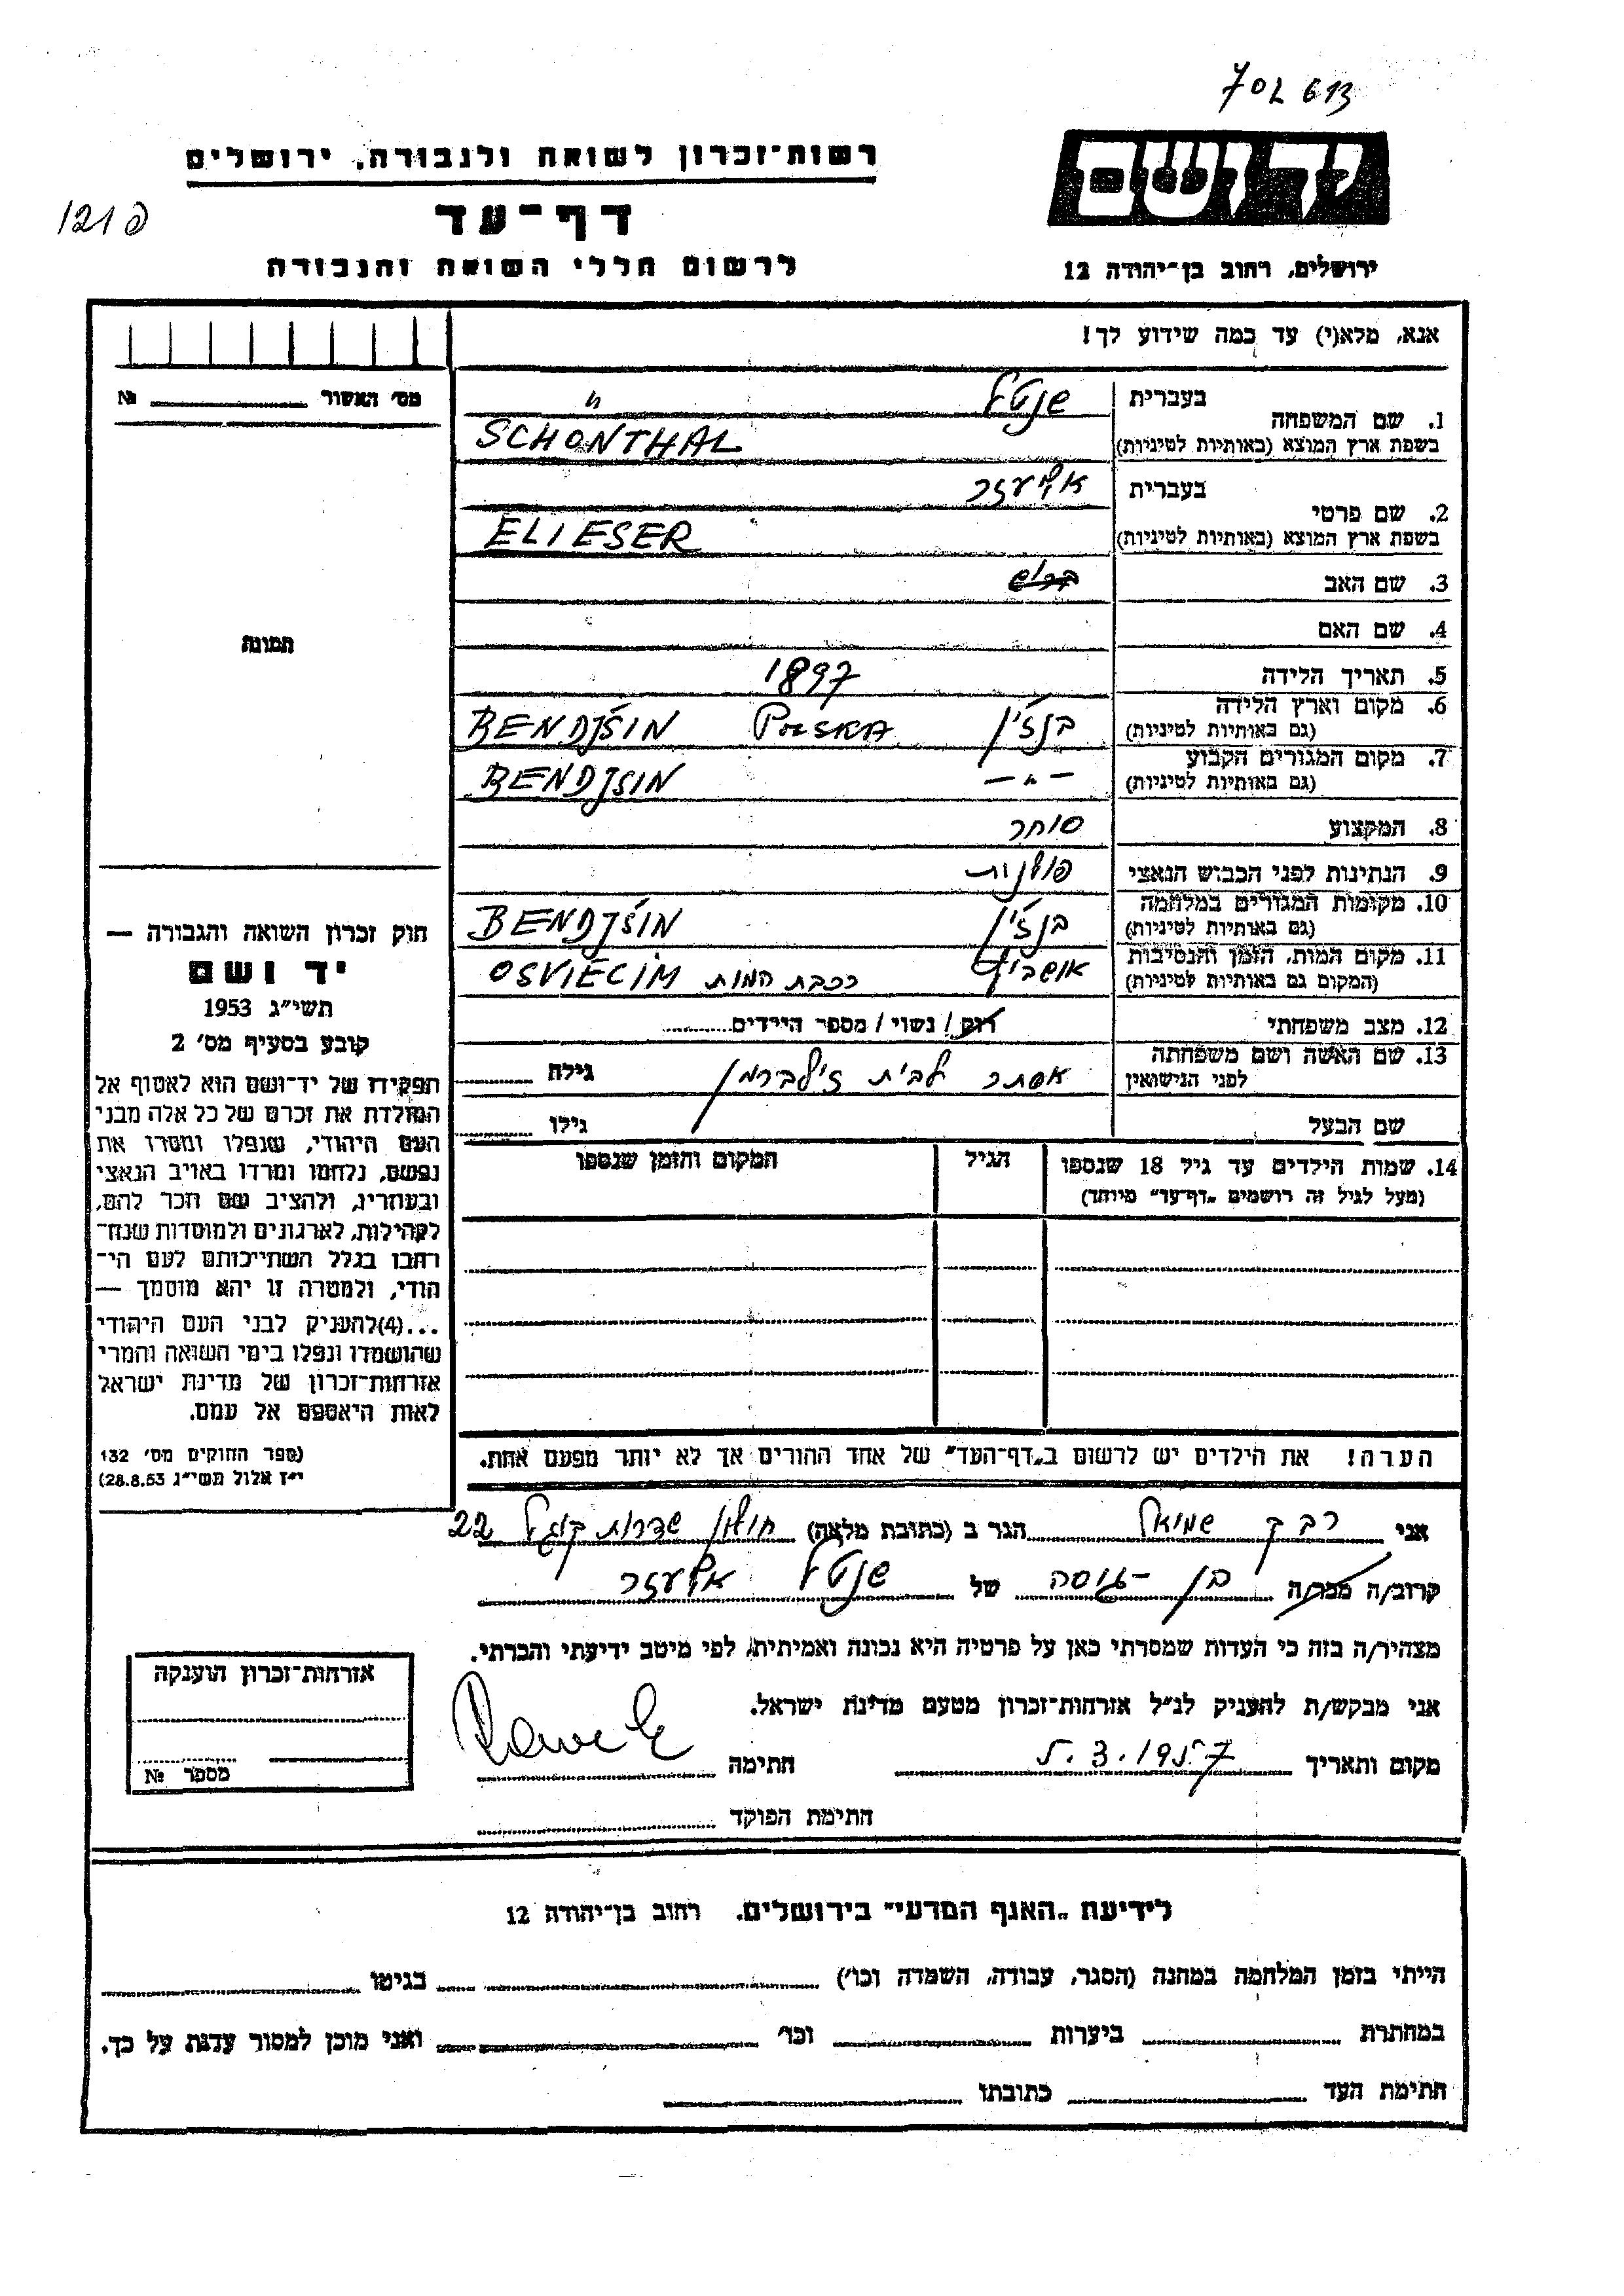 702613
רשות־זכרון לשואה ולגבורה, ירושלים
יד ושם
121 פ
דף־עד
לרשום חללי השואה והגבורה
ירושלים, רחוב בן־יהודה 12
אנא, מלא(י) עד כמה שידוע לך!
מס׳ האשור № 
1. שם המשפחה
בעברית שנטל
בשפת ארץ המוצא (באותיות לטיניות) SCHÖNTHAL
2. שם פרטי
בעברית אליעזר
בשפת ארץ המוצא (באותיות לטיניות) ELIESER
3. שם האב
4. שם האם
תמונה
5. תאריך הלידה 1897
6. מקום וארץ הלידה (גם באותיות לטיניות) בנדז'ין POLSKA BENDJSIN
7. מקום המגורים הקבוע (גם באותיות לטיניות) -"- BENDJSIN
8. המקצוע סוחר
9. הנתינות לפני הכבוש הנאצי פולנית
10. מקומות המגורים במלחמה (גם באותיות לטיניות) BENDJSIN
11. מקום המות, הזמן והנסיבות (המקום גם באותיות לטיניות) אושביץ רכבת המות OSVIECIM
12. מצב משפחתי רוק / נשוי / מספר הילדים
13. שם האשה ושם משפחתה לפני הנישואין אסתר לבית זילברמן גילה
שם הבעל גילו
14. שמות הילדים עד גיל 18 שנספו (מעל לגיל זה רושמים „דף־עד" מיוחד)
הגיל
המקום והזמן שנספו
חוק זכרון השואה והגבורה —
יד ושם
תשי"ג 1953
קובע בסעיף מס׳ 2
תפקידו של יד־ושם הוא לאסוף אל
המולדת את זכרם של כל אלה מבני
העם היהודי, שנפלו ומסרו את
נפשם, נלחמו ומרדו באויב הנאצי
ובעוזריו, ולהציב שם וזכר להם,
לקהילות, לארגונים ולמוסדות שנח־
רבו בגלל השתייכותם לעם הי־
הודי, ולמטרה זו יהא מוסמך —
...(4)להעניק לבני העם היהודי
שהושמדו ונפלו בימי השואה והמרי
אזרחות־זכרון של מדינת ישראל
לאות היאספם אל עמם.
(ספר החוקים מס׳ 132
י"ז אלול תשי"ג 28.8.53)
הערה! את הילדים יש לרשום ב„דף־העד" של אחד ההורים אך לא יותר מפעם אחת.
אני שמואל הגר ב (כתובת מלאה) חולון שדרות קוגל 22
קרוב/ה מכר/ה בן-גיסה של שנטל אליעזר
מצהיר/ה בזה כי העדות שמסרתי כאן על פרטיה היא נכונה ואמיתית, לפי מיטב ידיעתי והכרתי.
אני מבקש/ת להעניק לנ"ל אזרחות־זכרון מטעם מדינת ישראל.
מקום ותאריך 5.3.1957 חתימה
חתימת הפוקד
אזרחות־זכרון הוענקה
מספר №
לידיעת „האגף המדעי" בירושלים. רחוב בן־יהודה 12
הייתי בזמן המלחמה במחנה (הסגר, עבודה, השמדה וכו׳) בגיטו
במחתרת ביערות וכו׳ ואני מוכן למסור עדות על כך.
חתימת העד כתובתו